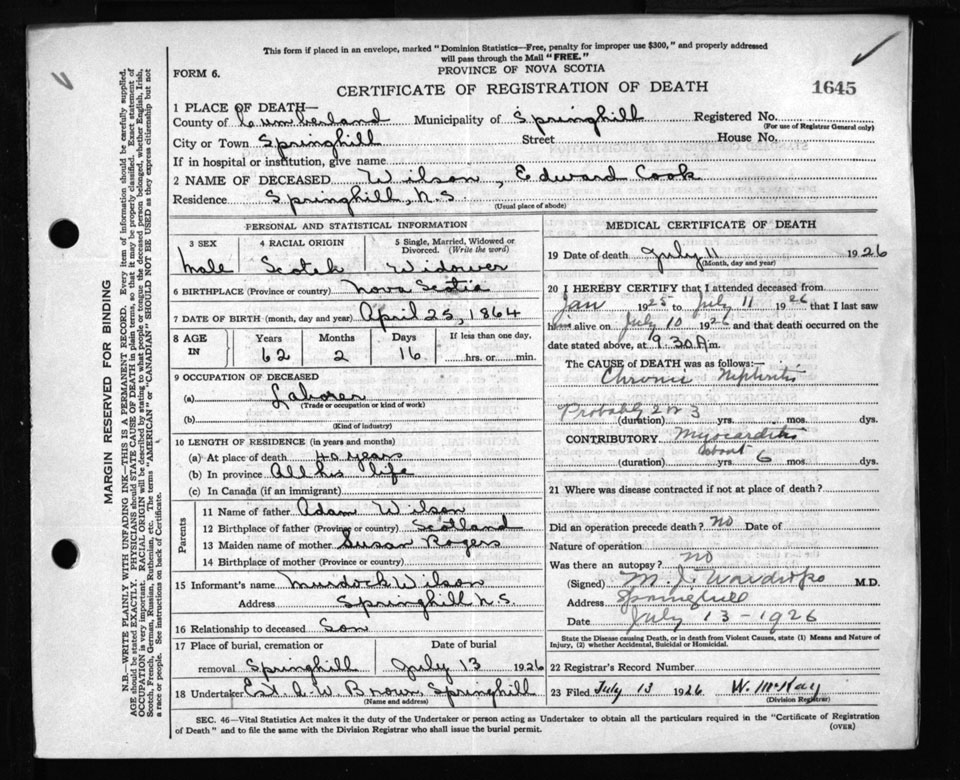 This form if placed in an envelope, marked "Dominion Statistics—Free, penalty for improper use $300," and properly addressed
will pass through the Mail "FREE."
FORM 6.
PROVINCE OF NOVA SCOTIA
CERTIFICATE OF REGISTRATION OF DEATH
1645
1 PLACE OF DEATH—
County of Cumberland Municipality of Springhill Registered No.
(For use of Registrar General only)
City or Town Springhill Street House No.
If in hospital or institution, give name
2 NAME OF DECEASED Wilson, Edward Cook
Residence Springhill, N.S.
(Usual place of abode)
PERSONAL AND STATISTICAL INFORMATION
3 SEX 4 RACIAL ORIGIN 5 Single, Married, Widowed or
Divorced. (Write the word)
Male Scotch Widower
6 BIRTHPLACE (Province or country) Nova Scotia
7 DATE OF BIRTH (month, day and year) April 25, 1864
8 AGE IN Years Months Days If less than one day,
62 2 16 hrs. or min.
9 OCCUPATION OF DECEASED
(a) Laborer
(Trade or occupation or kind of work)
(b)
(Kind of industry)
10 LENGTH OF RESIDENCE (in years and months)
(a) At place of death 40 years
(b) In province All his life
(c) In Canada (if an immigrant)
Parents
11 Name of father Adam Wilson
12 Birthplace of father (Province or country) Scotland
13 Maiden name of mother Susan Rogers
14 Birthplace of mother (Province or country)
15 Informant's name Murdock Wilson
Address Springhill N.S.
16 Relationship to deceased Son
17 Place of burial, cremation or Date of burial
removal Springhill July 13 1926
18 Undertaker Est. A. W. Brown Springhill
(Name and address)
MEDICAL CERTIFICATE OF DEATH
19 Date of death July 11 1926
(Month, day and year)
20 I HEREBY CERTIFY that I attended deceased from
Jan 1925 to July 11 1926 that I last saw
h alive on July 10 1926 and that death occurred on the
date stated above, at 9.30 A m.
The CAUSE of DEATH was as follows:
Chronic Nephritis
Probably 2 or 3
(duration) yrs. mos. dys.
CONTRIBUTORY Myocarditis
about
(duration) yrs. 6 mos. dys.
21 Where was disease contracted if not at place of death?
Did an operation precede death? no Date of
Nature of operation
Was there an autopsy? no
(Signed) M. J. Wardrope M.D.
Address Springhill
Date July 13 - 1926
State the Disease causing Death, or in death from Violent Causes, state (1) Means and Nature of
Injury, (2) whether Accidental, Suicidal or Homicidal.
22 Registrar's Record Number
23 Filed July 13 1926 W. McKay
(Division Registrar)
SEC. 46—Vital Statistics Act makes it the duty of the Undertaker or person acting as Undertaker to obtain all the particulars required in the "Certificate of Registration
of Death" and to file the same with the Division Registrar who shall issue the burial permit.
(OVER)
MARGIN RESERVED FOR BINDING
N.B.—WRITE PLAINLY WITH UNFADING INK—THIS IS A PERMANENT RECORD. Every item of information should be carefully supplied.
AGE should be stated EXACTLY. PHYSICIANS should STATE CAUSE OF DEATH in plain terms, so that it may be properly classified. Exact statement of
OCCUPATION is very important. RACIAL ORIGIN will be described by stating to what people or tongue the deceased person belonged, whether English, Irish,
Scotch, French, German, Russian, Ruthenian, etc. The terms "AMERICAN" or "CANADIAN" SHOULD NOT BE USED as they express citizenship but not
a race or people. See instructions on back of Certificate.